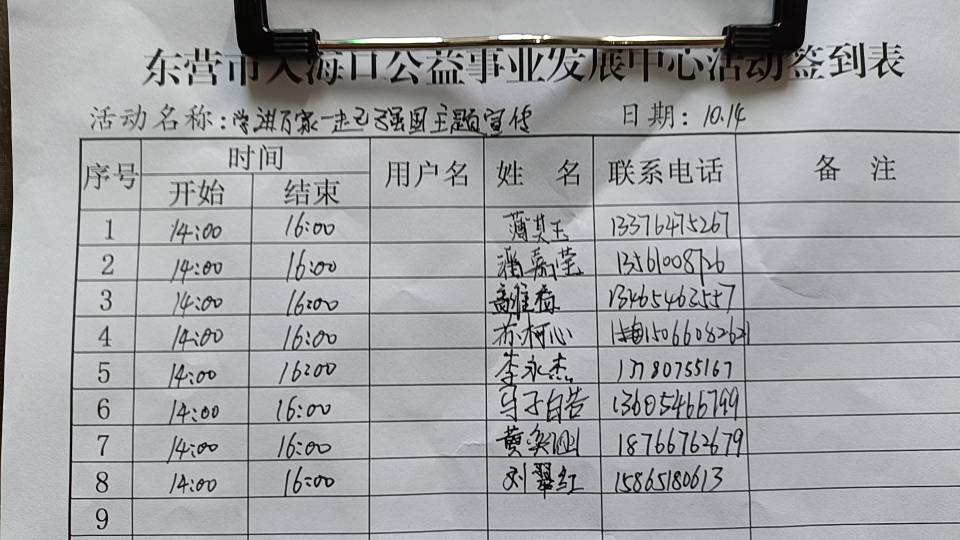 东营市入海口公益事业发展中心活动签到表
活动名称: 学进百家一起 强国主题宣传 日期: 10.14
序号 时间 用户名 姓 名 联系电话 备 注
开始 结束
1 14:00 16:00 薄其玉 13376475267
2 14:00 16:00 潘嘉莹 13561008726
3 14:00 16:00 13465463557
4 14:00 16:00 苏柯心 15066082621
5 14:00 16:00 李永杰 13780755167
6 14:00 16:00 马子白苦 13605466799
7 14:00 16:00 黄奕 18766762679
8 14:00 16:00 刘翠红 15865180613
9